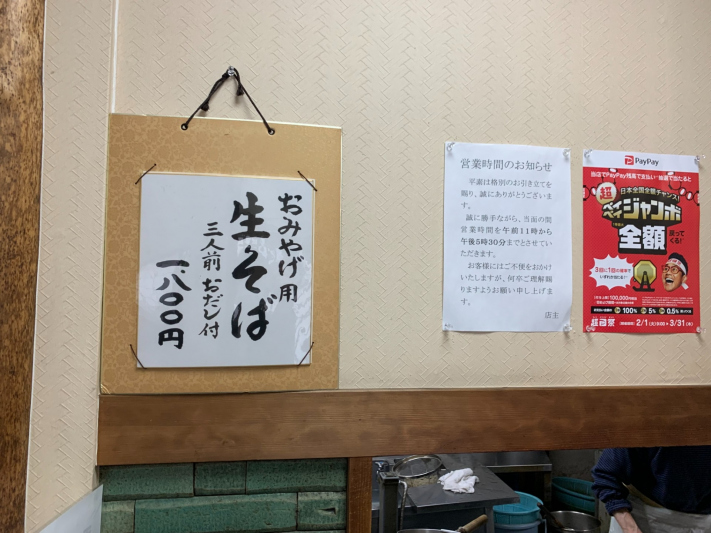 おみやげ用
生そば
三人前 おだし付
一八〇〇円
営業時間のお知らせ
平素は格別のお引き立てを
賜り、誠にありがとうございま
す。
誠に勝手ながら、当面の間
営業時間を午前11時から
午後5時30分までとさせてい
ただきます。
お客様にはご不便をおかけ
いたしますが、何卒ご理解賜
りますようお願い申し上げま
す。
店主
PayPay
当店でPayPay残高で支払い 抽選で当たると
日本全国全額チャンス!
超
ペイペイジャンボ
全額
戻って
くる!
3回に1回の確率で
いずれか当たる!
100% 5% 0.5%
超PayPay祭
2/1(火)0:00 ▶ 3/31(木)